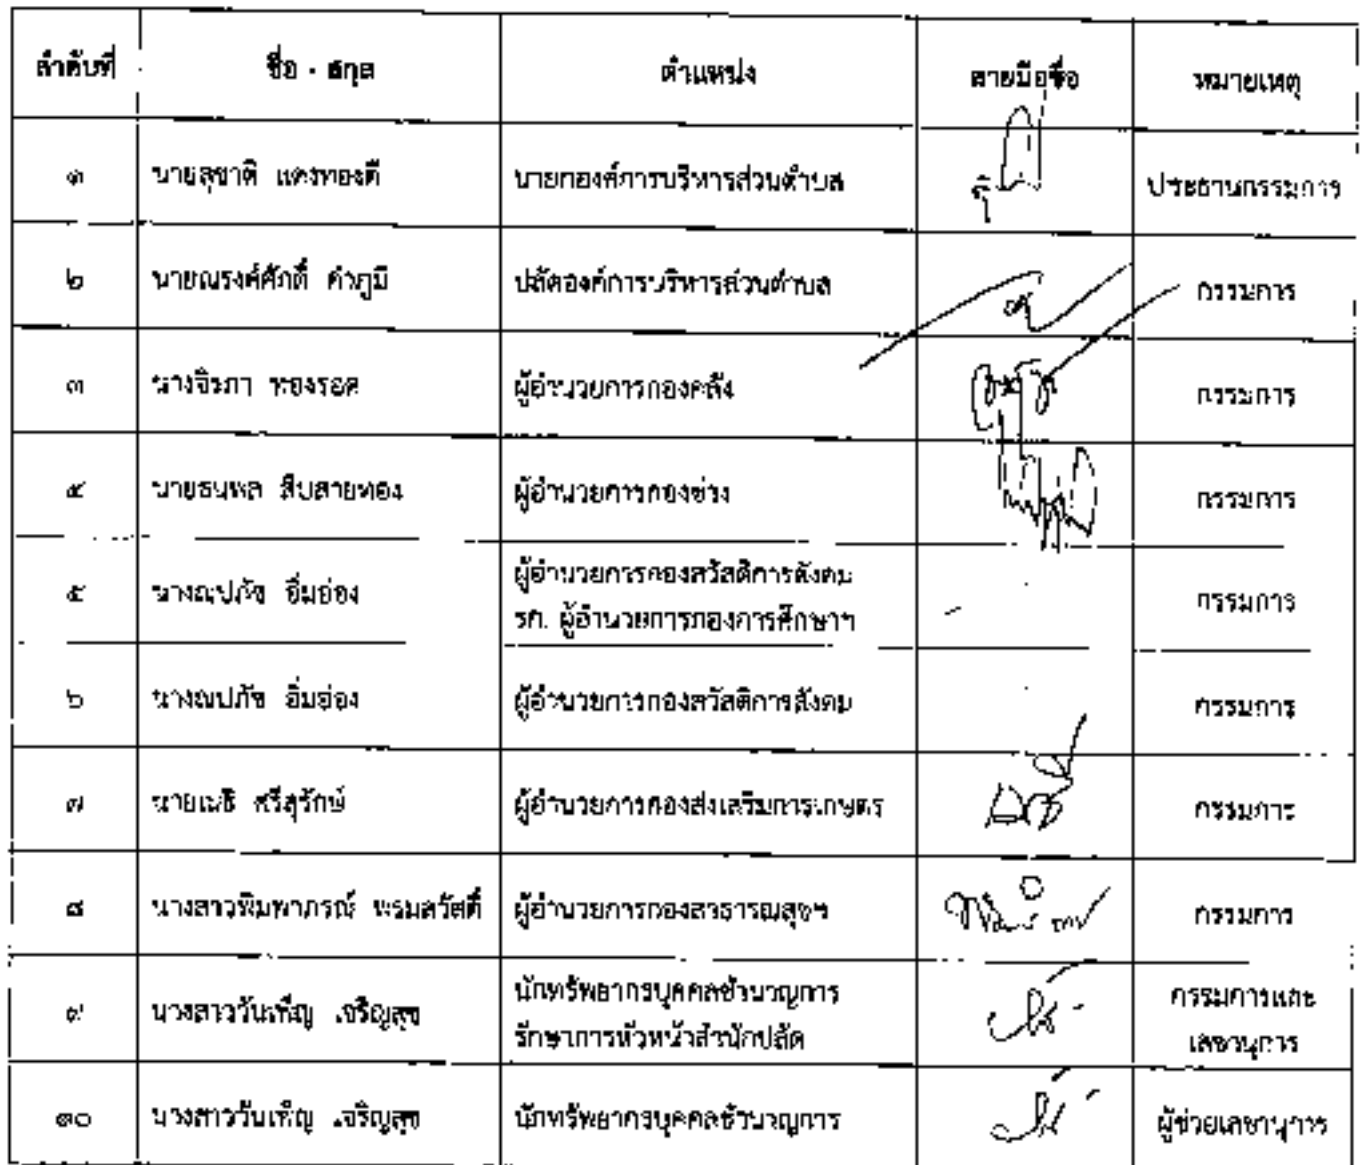 ลำดับที่ ชื่อ - สกุล ตำแหน่ง ลายมือชื่อ หมายเหตุ
๑ นายสุชาติ แตงทองดี นายกองค์การบริหารส่วนตำบล ประธานกรรมการ
๒ นายณรงค์ศักดิ์ คำภูมี ปลัดองค์การบริหารส่วนตำบล กรรมการ
๓ นางจิรภา ทองรอด ผู้อำนวยการกองคลัง กรรมการ
๔ นายธนพล สืบสายทอง ผู้อำนวยการกองช่าง กรรมการ
๕ นางณปภัช อิ่มอ่อง ผู้อำนวยการกองสวัสดิการสังคม กรรมการ
รก. ผู้อำนวยการกองการศึกษาฯ
๖ นางณปภัช อิ่มอ่อง ผู้อำนวยการกองสวัสดิการสังคม กรรมการ
๗ ศรีสุรักษ์ ผู้อำนวยการกองส่งเสริมการเกษตร กรรมการ
๘ นางสาวพิมพาภรณ์ พรมสวัสดิ์ ผู้อำนวยการกองสาธารณสุขฯ กรรมการ
๙ นางสาววันเพ็ญ เจริญสุข นักทรัพยากรบุคคลชำนาญการ กรรมการและ
รักษาการหัวหน้าสำนักปลัด เลขานุการ
๑๐ นางสาววันเพ็ญ เจริญสุข นักทรัพยากรบุคคลชำนาญการ ผู้ช่วยเลขานุการ